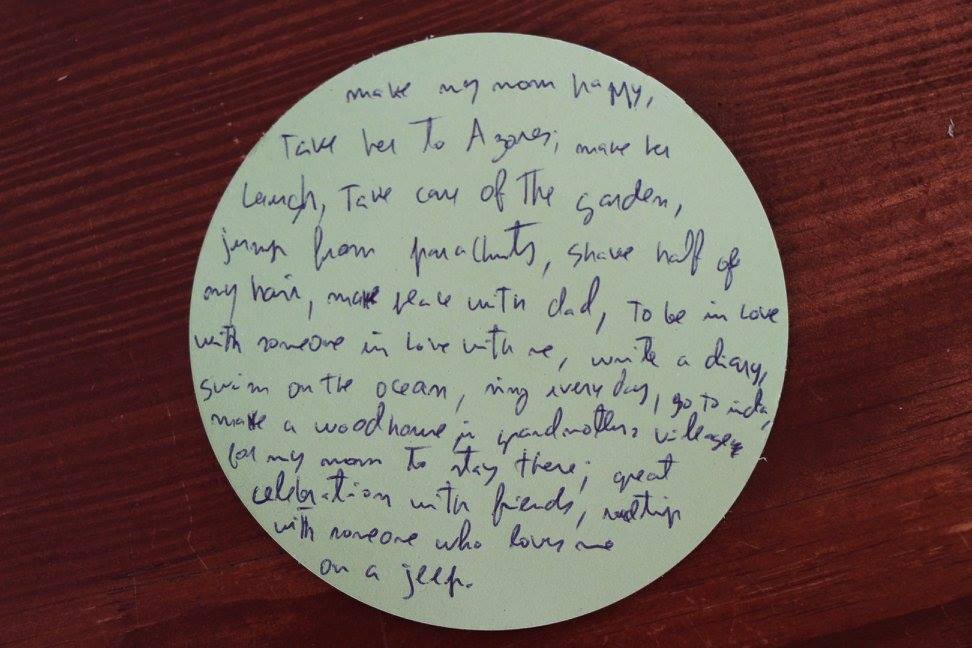 make my mom happy,
Take her to Azores; make her
laugh, Take care of The garden,
jump from parachuts, shave half of
my hair, make peace with dad, To be in love
with someone in love with me, write a diary,
swim on the ocean, sing every day, go to india,
make a woodhouse in grandmothers village
for my mom to stay there; great
celebration with friends, roadtrip
with someone who loves me
on a jeep.